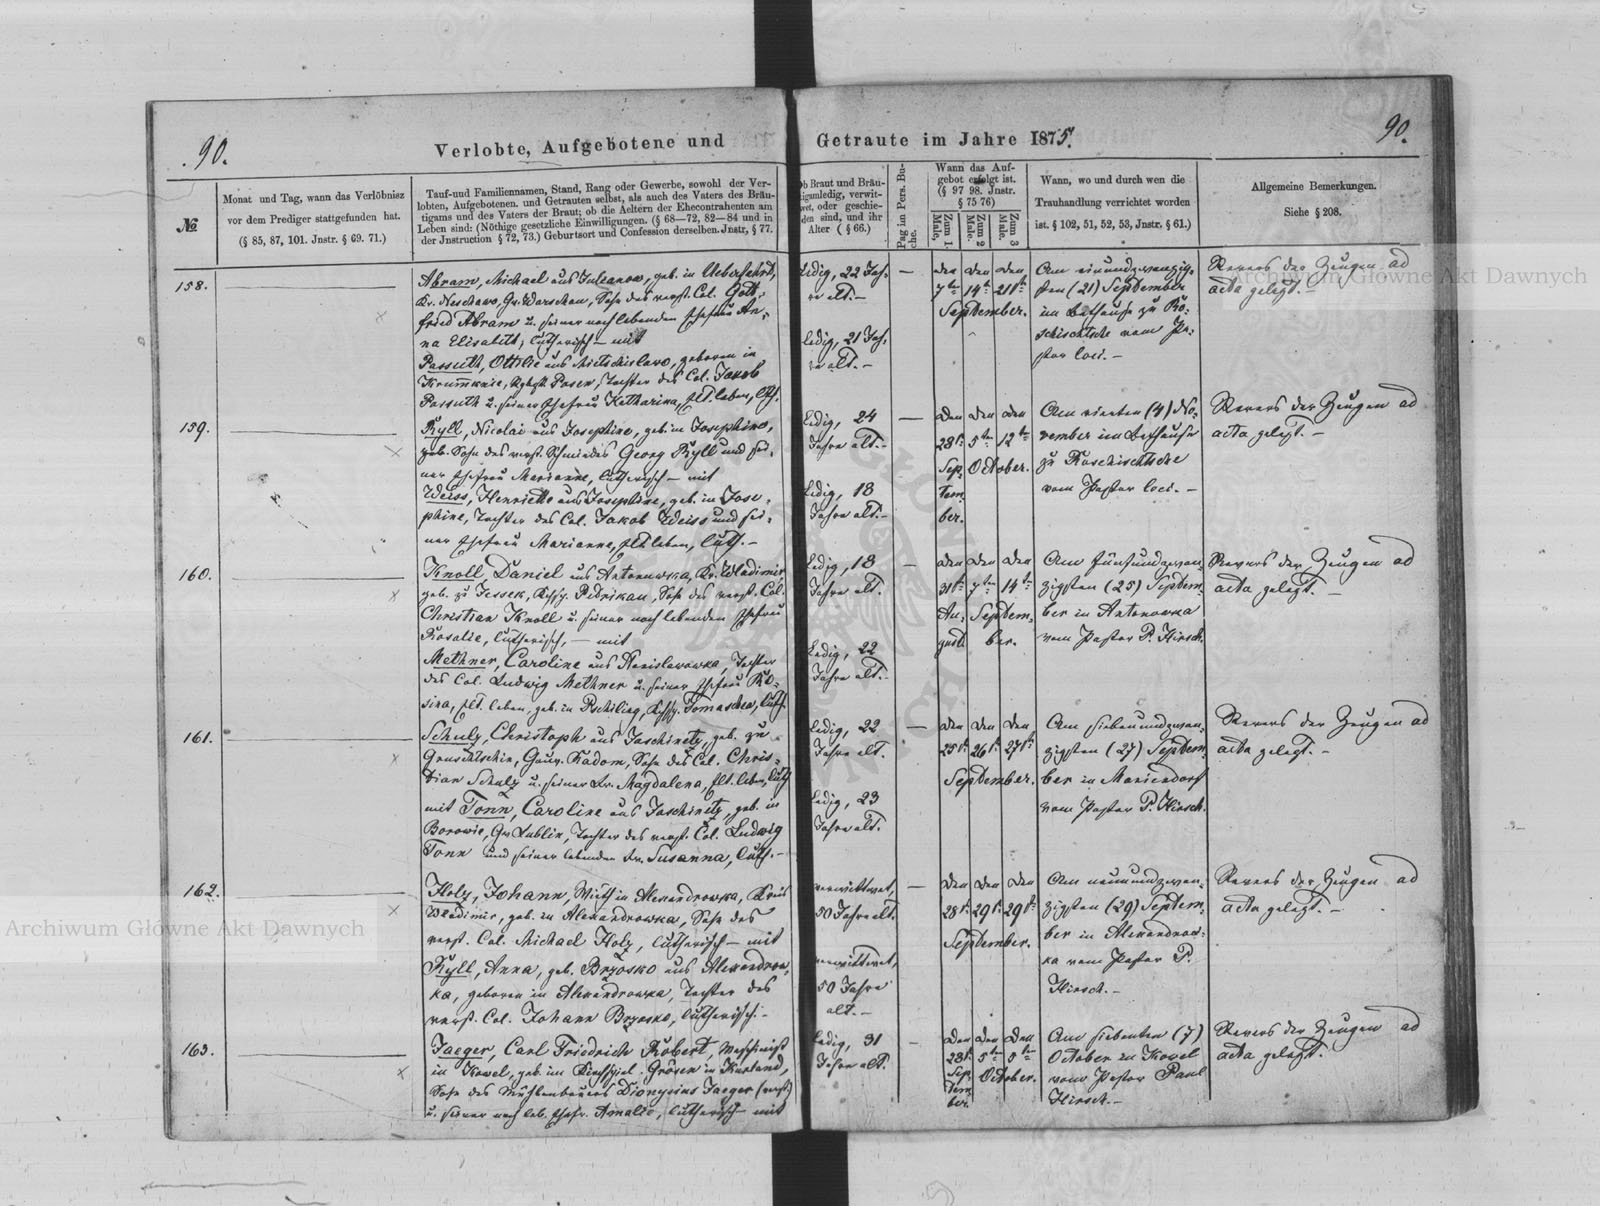 90.
Verlobte, Aufgebotene und Getraute im Jahre 1875.
90.
№
Monat und Tag, wann das Verlöbnisz
vor dem Prediger stattgefunden hat.
(§ 85, 87, 101. Jnstr. § 69. 71.)
Tauf-und Familiennamen, Stand, Rang oder Gewerbe, sowohl der Ver-
lobten, Aufgebotenen. und Getrauten selbst, als auch des Vaters des Bräu-
tigams und des Vaters der Braut; ob die Aeltern der Ehecontrahenten am
Leben sind: (Nöthige gesetzliche Einwilligungen. (§ 68—72, 82—84 und in
der Jnstruction § 72, 73.) Geburtsort und Confession derselben. Jnstr, § 77.
Ob Braut und Bräu-
tigam ledig, verwit-
wet, oder geschie-
den sind, und ihr
Alter (§ 66.)
Pag im Pers. Bu-
che.
Wann das Auf-
gebot erfolgt ist.
(§ 97 98. Jnstr.
§ 75 76)
Zum 1 Male.
Zum 2 Male.
Zum 3 Male.
Wann, wo und durch wen die
Trauhandlung verrichtet worden
ist. § 102, 51, 52, 53, Jnstr. § 61.)
Allgemeine Bemerkungen.
Siehe § 208.
158.
Abram, Michael aus Juleanow, geb. in Ueberfahrt,
Kr. Neschawo, Gv. Warschau, Sohn des verst. Col. Gott-
fried Abram u. seiner noch lebenden Ehefrau An-
na Elisabeth, lutherisch — mit
Passuth, Ottilie aus Mietschislawo, geboren in
Tochter des Col. Jakob
Passuth u. seiner Ehefrau Katharina, Elt. leben, luth.
ledig, 22 Jah-
re alt.—
ledig, 21 Jah-
re alt.—
den den den
7ten 14ten 21ten
September.
Am einundzwanzig-
sten (21) September
im Bethause zu Ro-
schischtsche vom Pa-
stor loci. —
Revers der Zeugen ad
acta gelegt. —
159.
Ryll, Nicolai aus Josephine, geb. in Josephine,
Sohn des verst. Schmiedes Georg Ryll und sei-
ner Ehefrau Marianne, lutherisch — mit
Weiss, Henriette aus Josephine, geb. in Jose-
phine, Tochter des Col. Jakob Weiss und sei-
ner Ehefrau Marianne, Elt. leben, luth. —
ledig, 24
Jahre alt.—
ledig, 18
Jahre alt.—
den den den
28t. 5ten 12ten
Sep- October.
tem-
ber.
Am vierten (4) No-
vember im Bethause
zu Roschischtsche
vom Pastor loci. —
Revers der Zeugen ad
acta gelegt. —
160.
Knoll, Daniel aus Antonowka, Kr. Wladimir,
geb. zu Jessek, Petrikau, Sohn des verst. Col.
Christian Knoll u. seiner noch lebenden Ehefrau
Rosalie, lutherisch, — mit
Methner, Caroline aus Stanislawowka, Tochter
des Col. Ludwig Methner u. seiner Ehefrau Ro-
sina, Elt. leben, geb. in Tomaschew, luth.
ledig, 18
Jahre alt.
ledig, 22
Jahre alt.—
den den den
31t. 7ten 14ten
Au- Septem-
gust. ber.
Am fünfundzwan-
zigsten (25) Septem-
ber in Antonowka
vom Pastor P. Hirsch.
Revers der Zeugen ad
acta gelegt. —
161.
Schulz, Christoph aus Jaschinetz, geb. zu
Gouv. Radom, Sohn des Col. Chris-
tian Schulz u. seiner Fr. Magdalena, Elt. leben, luth.
mit Tonn, Caroline aus Jaschinetz, geb. in
Borowie, Gv. Lublin, Tochter des verst. Col. Ludwig
Tonn und seiner lebenden Fr. Susanna, luth. —
ledig, 22
Jahre alt.
ledig, 23
Jahre alt.
den den den
25t. 26t. 27t.
September.
Am siebenundzwan-
zigsten (27) Septem-
ber in Mariendorf
vom Pastor P. Hirsch.
Revers der Zeugen ad
acta gelegt. —
162.
Holz, Johann, Wirth in Alexandrowka, Kreis
Wladimir, geb. in Alexandrowka, Sohn des
verst. Col. Michael Holz, lutherisch — mit
Ryll, Anna, geb. Brzosko aus Alexandrow-
ka, geboren in Alexandrowka, Tochter des
verst. Col. Johann Brzosko, lutherisch. —
verwittwet,
50 Jahre alt.
verwittwet,
50 Jahre
alt. —
den den den
28t. 29t. 29t.
September.
Am neunundzwan-
zigsten (29) Septem-
ber in Alexandrow-
ka vom Pastor P.
Hirsch. —
Revers der Zeugen ad
acta gelegt. —
163.
Jaeger, Carl Friedrich Robert, Maschinist
in Kowel, geb. im Kirchspiel Grösen in Kurland,
Sohn des Mühlenbauers Dionysius Jaeger (verst.)
u. seiner noch leb. Ehefr. Amalie, lutherisch — mit
ledig, 31
Jahre alt.
den den den
28t. 5ten 5ten
Sep- October.
tem-
ber.
Am siebenten (7)
October in Kowel
vom Pastor Paul
Hirsch. —
Revers der Zeugen ad
acta gelegt.
Archiwum Główne Akt Dawnych
Archiwum Główne Akt Dawnych